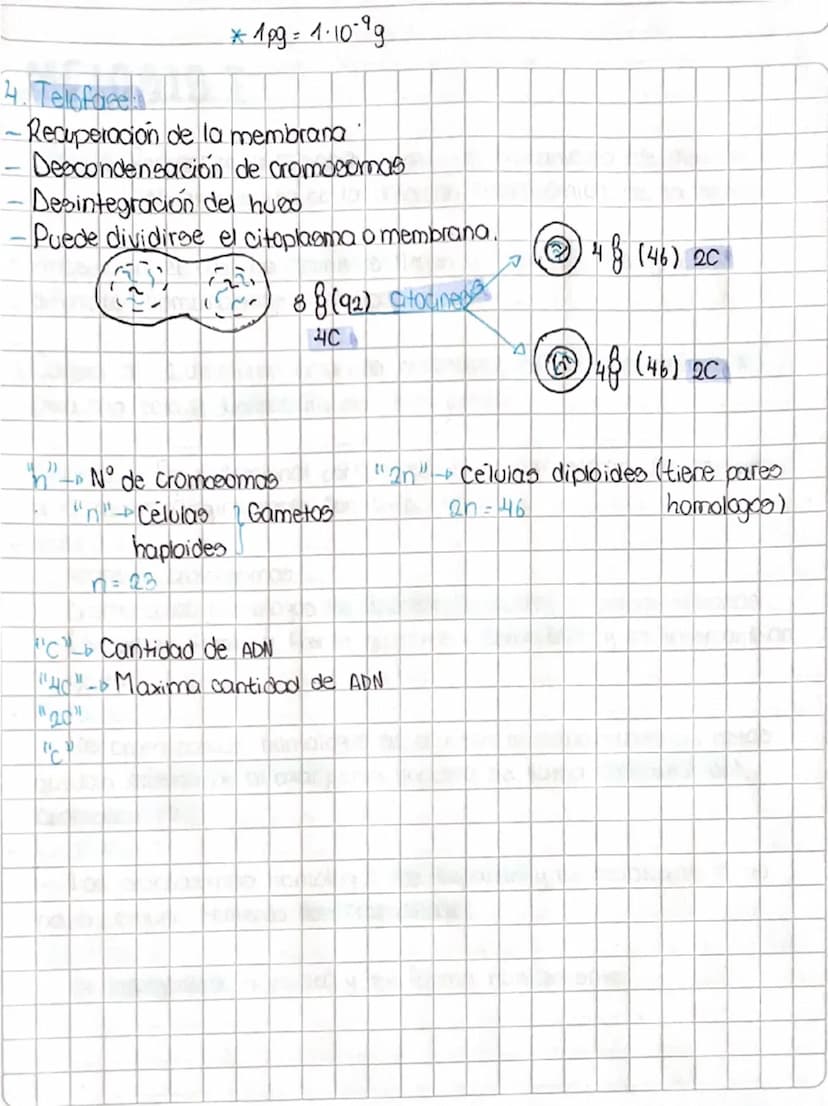 * 1pg = 1·10⁻⁹g
4. Telofase:
- Recuperación de la membrana
- Descondensación de cromosomas
- Desintegración del huso
- Puede dividirse el citoplasma o membrana.
4 (46) 2C
8 (92) citocinesis
4C
4 (46) 2C
"n" → N° de cromosomas
"n" → Células } Gametos
haploides
n = 23
"2n" → Células diploides (tiene pares
2n = 46 homologos)
"C" → Cantidad de ADN
"4c" → Maxima cantidad de ADN
"2c"
"c"